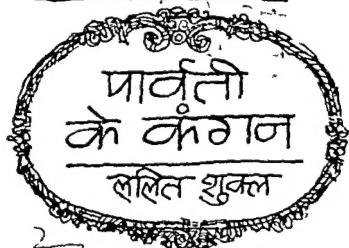 पार्वती
के कंगन
ललित शुक्ल